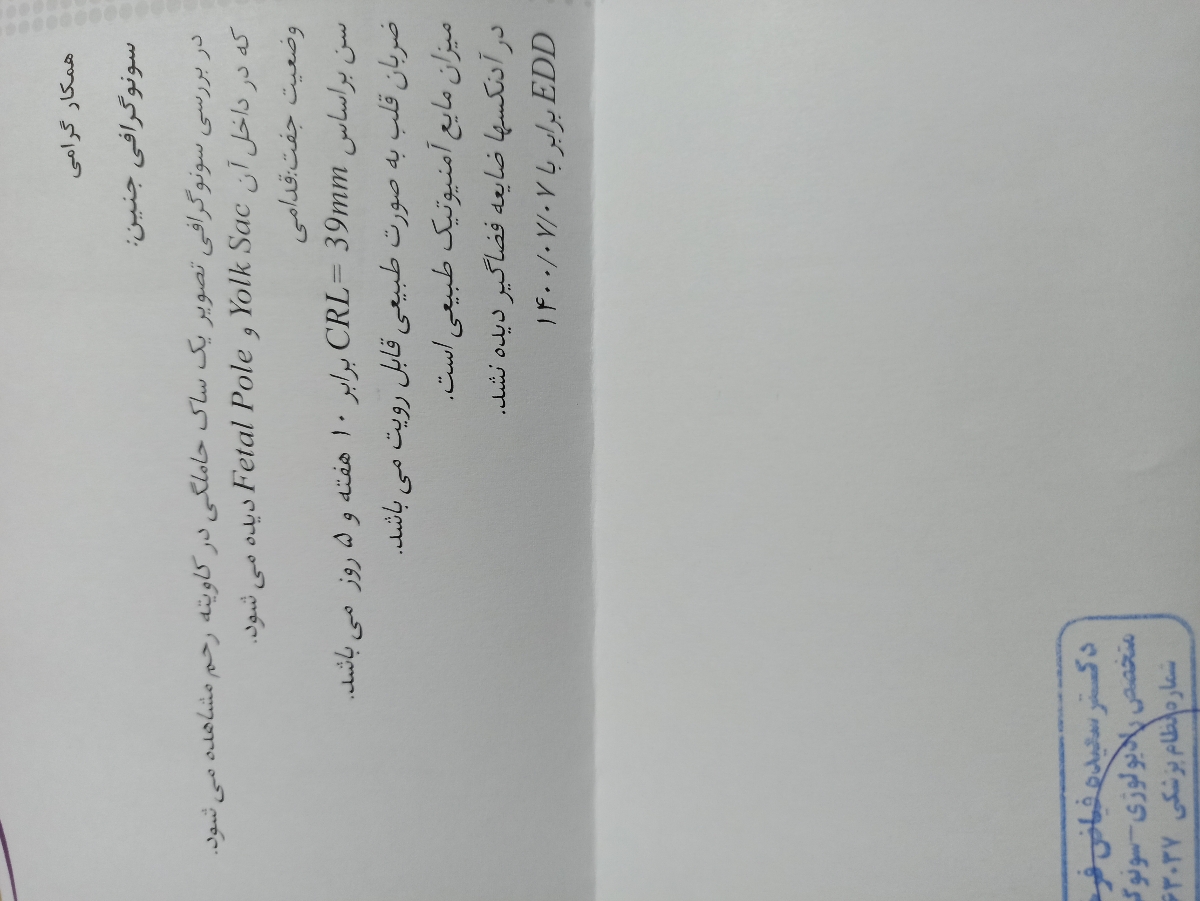 همکار گرامی
سونوگرافی جنین:
در بررسی سونوگرافی تصویر یک ساک حاملگی در کاویته رحم مشاهده می شود.
که در داخل آن Yolk Sac و Fetal Pole دیده می شود.
وضعیت جفت:قدامی
سن براساس CRL= 39mm برابر ۱۰ هفته و ۵ روز می باشد.
ضربان قلب به صورت طبیعی قابل رویت می باشد.
میزان مایع آمنیوتیک طبیعی است.
در آدنکسها ضایعه فضاگیر دیده نشد.
EDD برابر با ۱۴۰۰/۰۷/۰۷
دکتر سعیده فیاض
متخصص رادیولوژی-
شماره نظام پزشکی